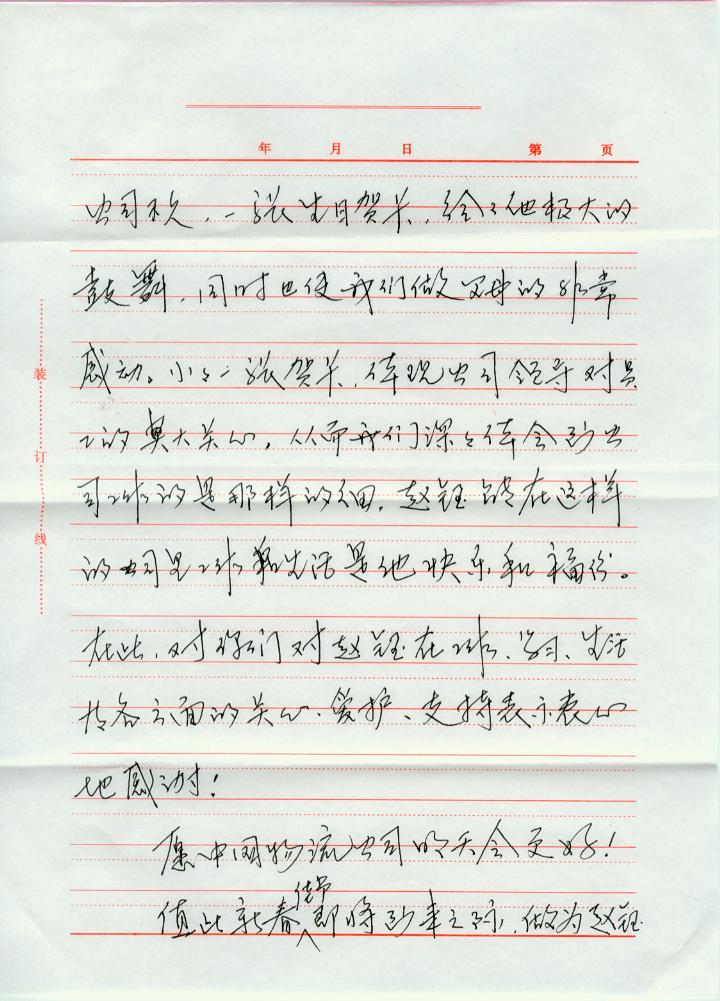 年 月 日 第 页
公司不久,一张生日贺卡,给了他极大的
鼓舞,同时也使我们做父母的非常
感动。小小一张贺卡,体现公司领导对员
工的莫大关心,从而我们深深体会到公
司工作的是那样的细,赵钰能在这样
的公司里工作和生活是他快乐和福份。
在此,对你们对赵钰在工作、学习、生活
等各方面的关心、爱护、支持表示衷心
地感谢!
愿中国物流公司明天会更好!
佳节
值此新春即将到来之际,做为赵钰
装
订
线